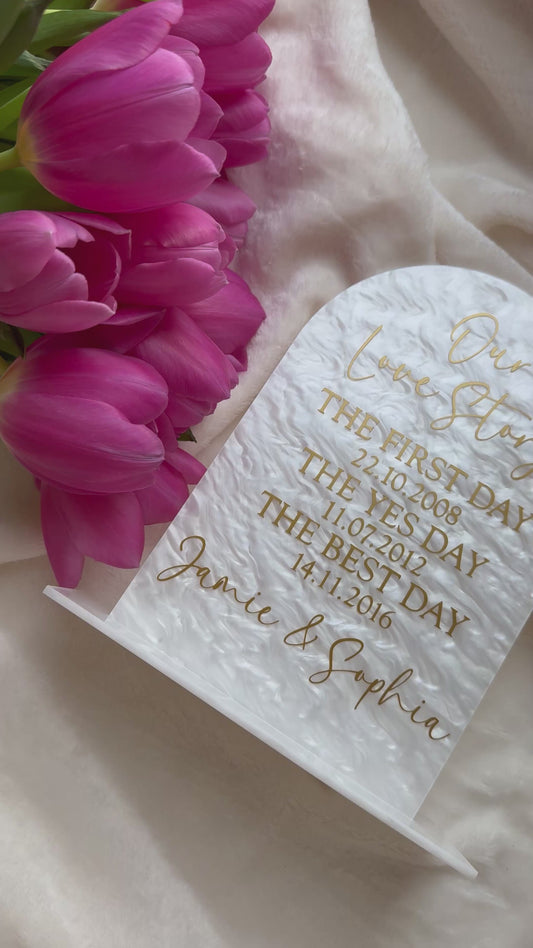 Our
Love Story
THE FIRST DAY
22.10.2008
THE YES DAY
11.07.2012
THE BEST DAY
14.11.2016
Jamie & Sophia